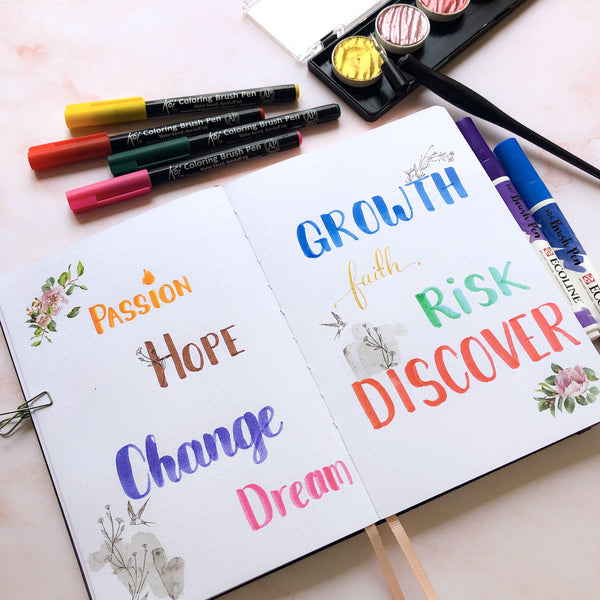 Koi Coloring Brush Pen AP
Koi Coloring Brush Pen AP
Koi Coloring Brush Pen AP
Koi Coloring Brush Pen AP
PASSION
HOPE
Change
Dream
GROWTH
faith
RISK
DISCOVER
Brush Pen
ECOLINE
Brush Pen
ECOLINE